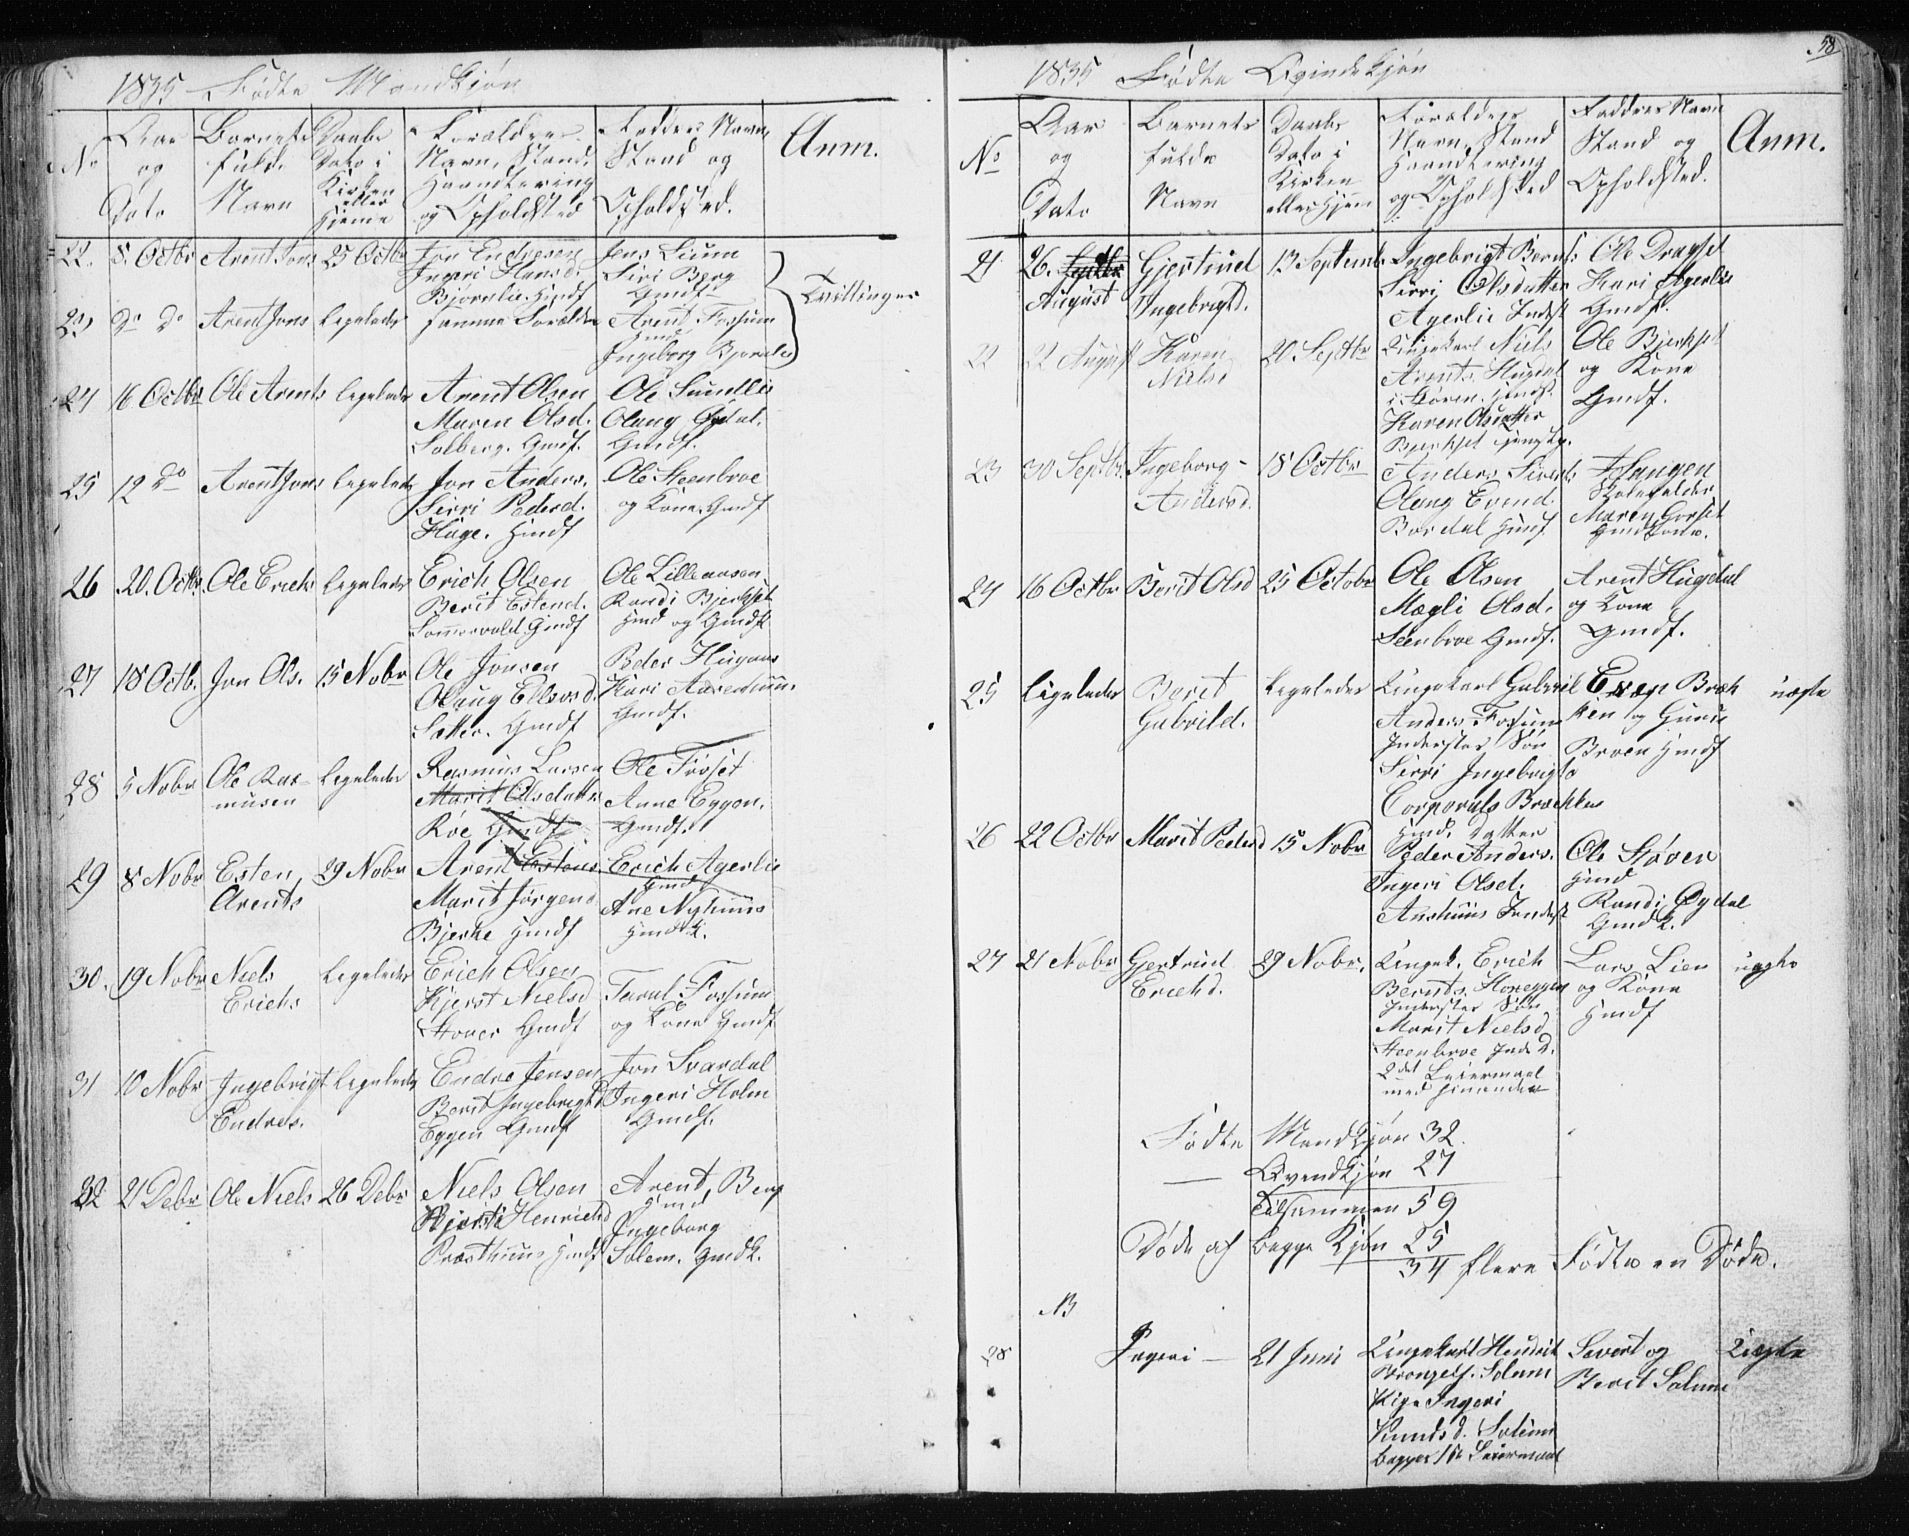 1835 Fødte Mandkjøn
No
Aar og Dato
Barnets fulde Navn
Daabs Dato i Kirken eller Hjemme
Forældres Navn, Stand, Haandtering og Opholdsted
Faddres Navn, Stand og Opholdsted.
Anm.
22. 8. Octbr Arent Jons 25 Octbr
Jon Endresen
Ingeri Hansd.
Bjørnlie. Huusf
Jens Lium
Siri Berg
Gmdf.
Tvillinger
23 do do Arent Jons Ligeledes
samme Forældre
Arent Fossum
Ingeborg Bjørnlie
24 16 Octbr Ole Arents Ligeledes
Arent Olsen
Maren Olsd.
Solberg. Gmdf.
Ole Sundlie
Olaug Øydal.
Gmdf.
25 12 do Arent Jons Ligeledes
Jon Anders.
Sirri Pedersd.
Hage. Hmdf
Ole Steenbroe
og Kone. Gmdf
26 20. Octbr. Ole Erichs Ligeledes
Erich Olsen
Berit Estend.
Sommervold. Gmdf
Ole Lilleaasen
Randi Bjerkset
Hmd og Gmdk
27 18 Octb. Jon Ols. 15 Nobr
Ole Jonsen
Olaug Ellevsd.
Gmdf
Peder Hugaas
Kari
Gmdf.
28 5 Nobr Ole Rasmusen Ligeledes
Rasmus Larsen
Marit Olsdatter
Røe Gmdf
Ole Frøset
Anne Eggen.
Gmdf.
29 8 Nobr Esten Arents 29 Nobr
Arent Estens
Marit Jørgens
Bjerke Hmdf
Erich Agerlie
Hmd
Ane Nyhuus
Hmdk.
30. 19 Nobr Niels Erichs Ligeledes
Erich Olsen
Kjerst Nielsd
Hover Gmdf
Taral Fossum
og Kone Gmdf
31 10 Nobr Ingebrigt Endres. Ligeledes
Endre Jensen
Berit Ingebrigtd
Eggen Gmdf
Jon Svardal
Ingeri Holm
Gmdf.
32 21 Debr Ole Niels 26 Debr
Niels Olsen
Kjersti Henrichd
Præsthuus Hmdf
Arent Berg
Hmd
Ingeborg
Solem. Gmdk.
58
1835 Fødte Qvindekjøn
No
Aar og Dato
Barnets fulde Navn
Daabs Dato i Kirken eller Hjem
Forældres Navn, Stand Haandtering og Opholdsted
Faddres Navn Stand og Opholdsted.
Anm.
21 26. August Gjertrud Ingebrigtd. 13 Septemb.
Ingebrigt Bernts.
Sirri Olsdatter
Agerlie Inderst
Ole Dragset
Kari Agerlie
Gmdf.
22 22 August Karen Nielsd 20 Septbr
Ungekarl Niels
Arents. Hugdal
i Støren.
Karen Olsdatter
Bjerkset
Ole Bjerkset
og Kone
Gmdf.
23 30 Septbr. Ingeborg Andersd. 18 Octbr
Anders Siverts
Olaug Evend.
Bordal Hmdf
Haugen
Skoleholder
Maren Gorset
Gmdkone.
24 16 Octbr Berit Olsd 25 Octobr
Ole Olsen
Magli Olsd.
Steenbroe Gmdf.
Arent Hugdal
og Kone
Gmdf.
25 Ligeledes Berit Gabrield. Ligeledes
Ungekarl Gabriel
Anders. Fossum
Inderstes Søn
Sirri Ingebrigtsd
Corporals Brækken
Hmds Datter
Even Bræk
ken og Guru
Broen Hmdf
uægte
26 22 Octbr Marit Pedersd 15 Nobr
Peder Anders.
Ingeri Olsd.
Aashuus Inderst
Ole Støren
Hmd
Randi Øydal
Gmdk.
27 21 Nobr Gjertrud Erichd. 29 Nobr.
Ungek. Erich
Bernts. Honeggen
Inderstes Søn
Marit Nielsd
Steenbroe Inds D.
2det Leiermaal
med hinanden
Lars Lien
og Kone
Hmdf
uægte
Fødte Mandkjøn 32.
— Qvindkjøn 27
Tilsammen 59
Døde af begge Kjøn 25
34 flere Fødte en Døde.
NB
28 Ingeri — 21 Juni
Ungekarl Hendrik
Solum
Pige Ingeri
Knudsd. Solum
begges 1ste Leiermaal
Sivert og
Berit Solum
Uægte